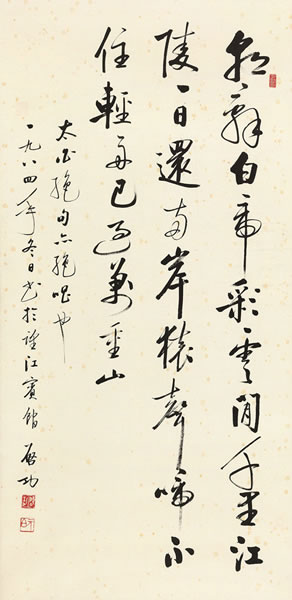 朝辭白帝彩雲間千里江
陵一日還兩岸猿聲啼不
住輕舟已過萬重山
太白絕句亦絕唱也
一九八四年冬日書於江賓館 啟功